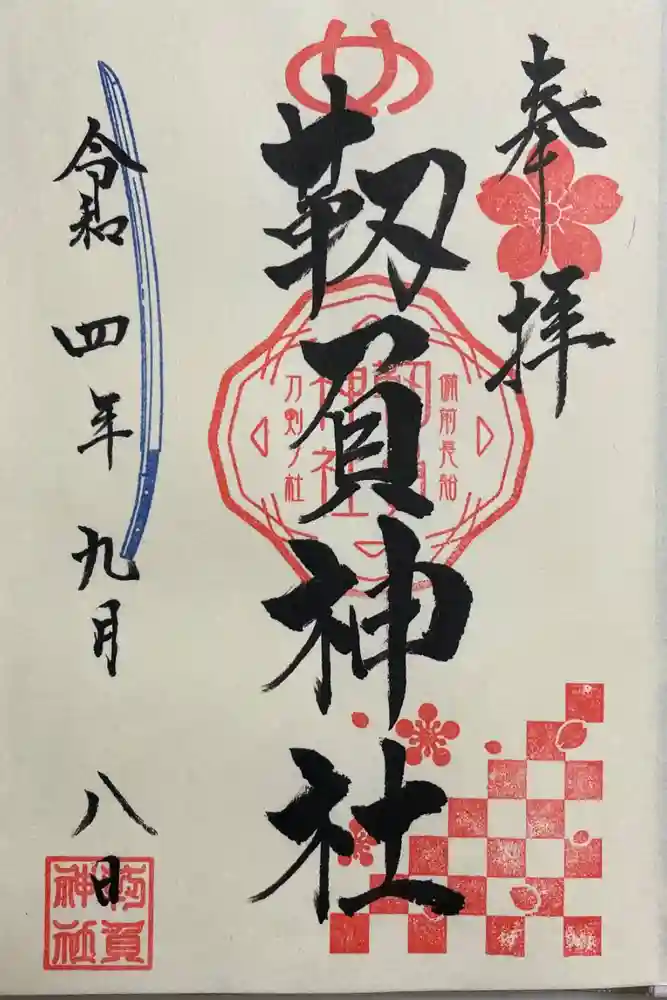 奉拝
靭負神社
備前長船
刀剣ノ社
令和四年九月八日
靭負
神社